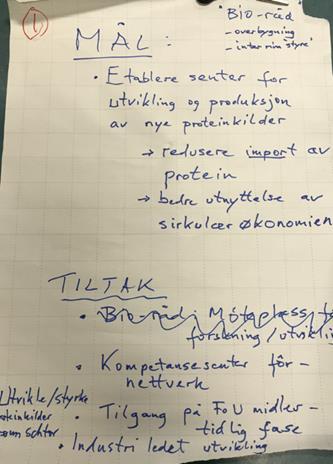 1
"Bio-råd
- overbygning
- interrim styre"
MÅL :
• Etablere senter for
utvikling og produksjon
av nye proteinkilder
→ redusere import av
protein
→ bedre utnyttelse av
sirkulær økonomien
TILTAK
• Bio-råd: Møteplass
forskning/utvikling
• Kompetansesenter for-
nettverk
Utvikle/styrke
• Tilgang på FoU midler -
tidlig fase
• Industri ledet utvikling